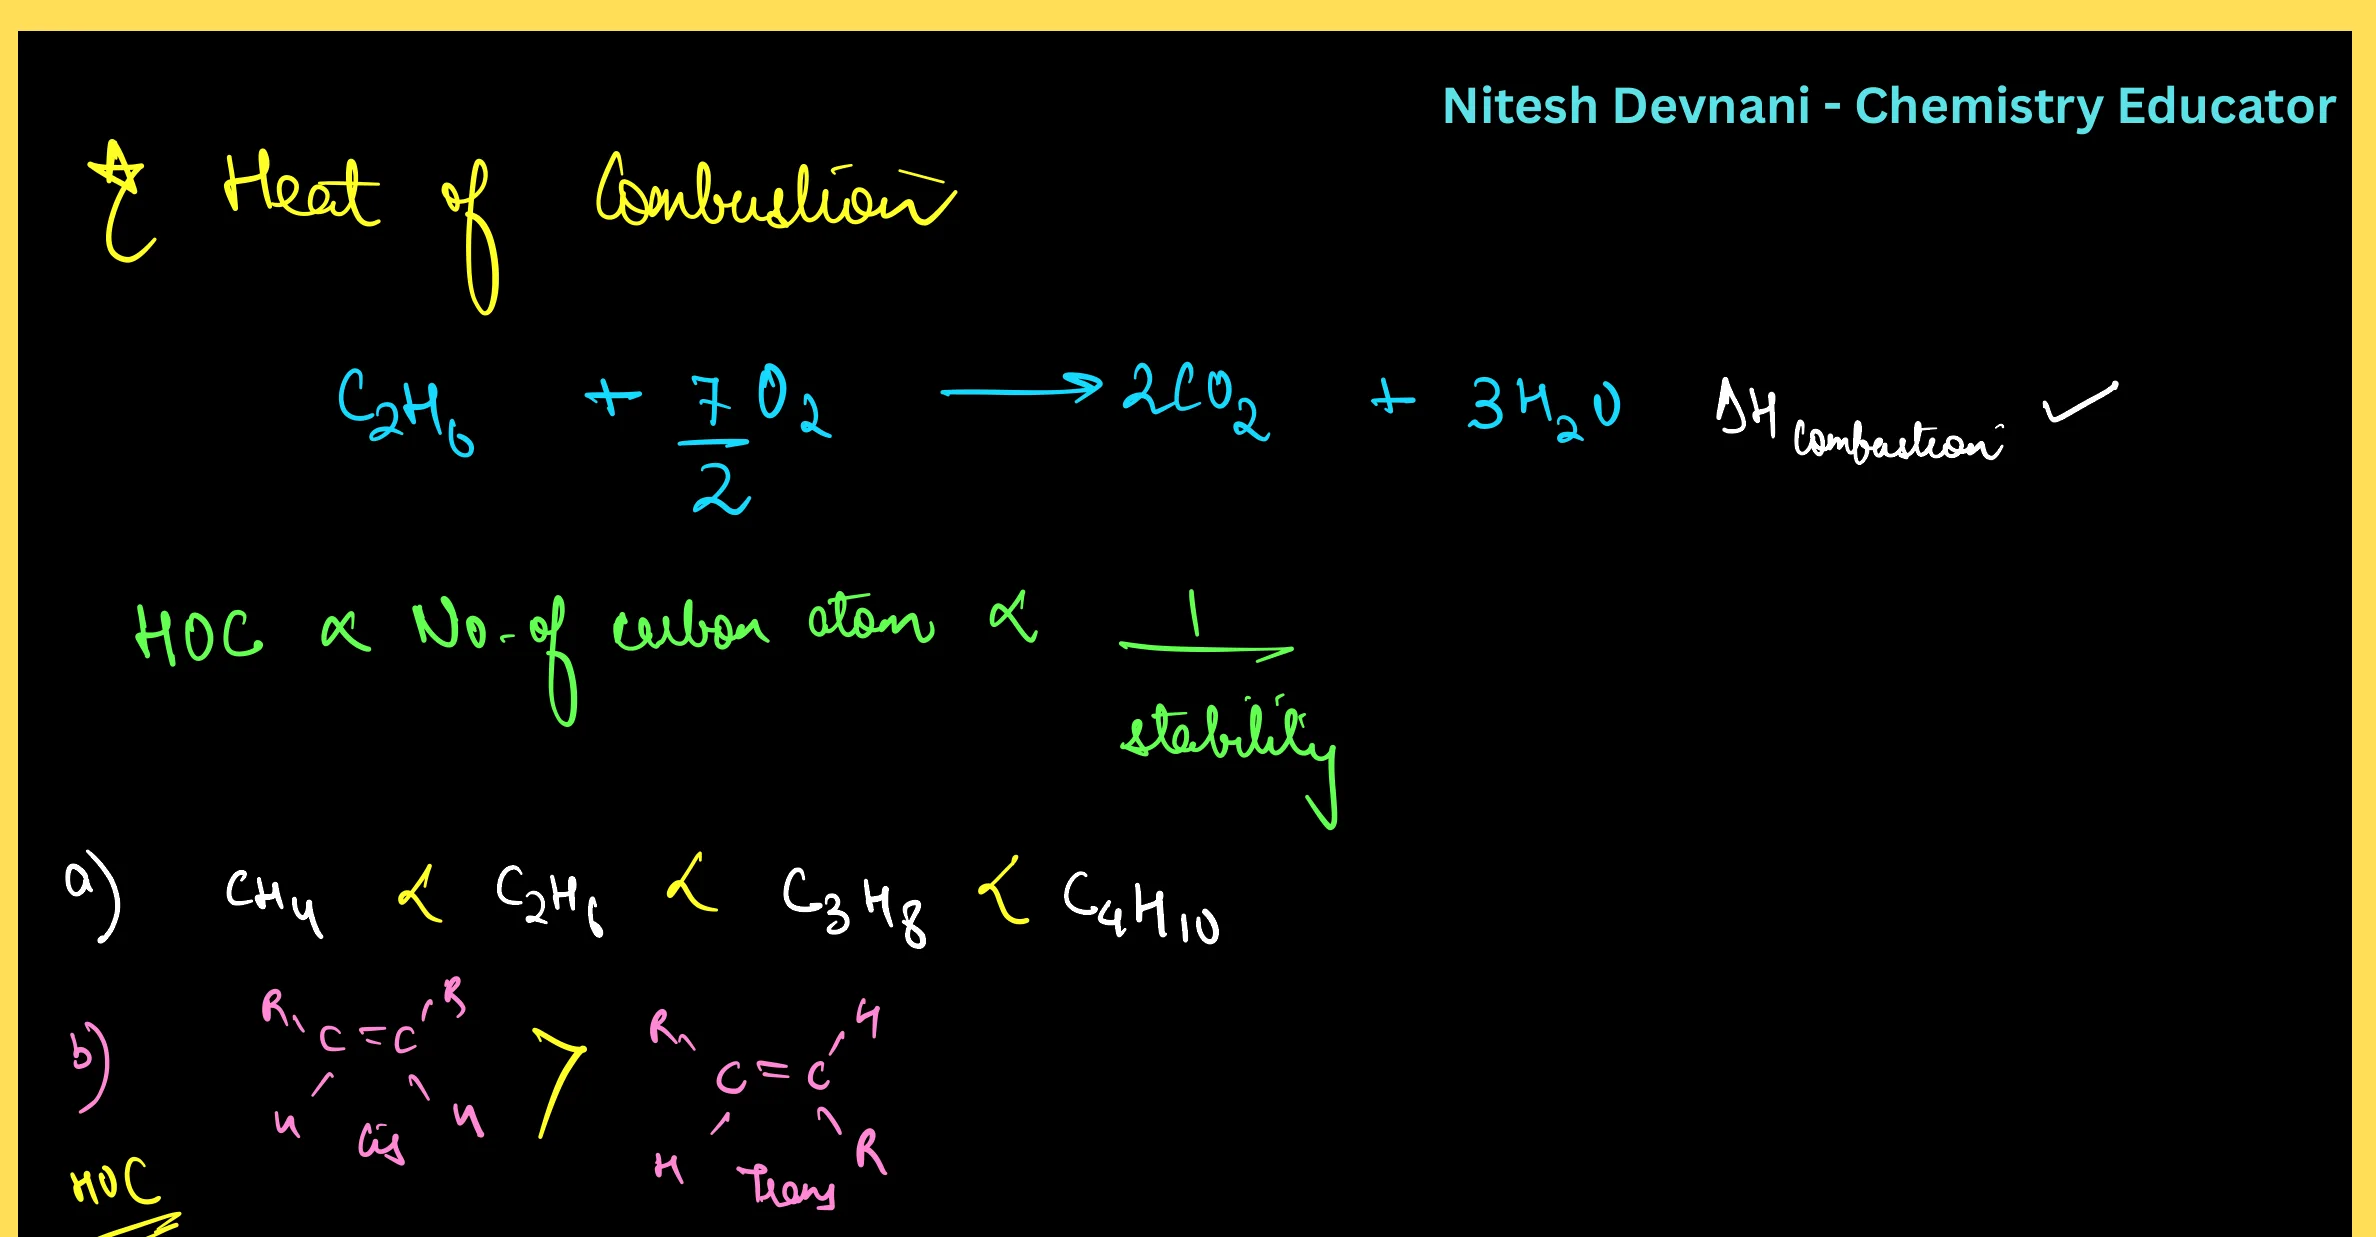 Nitesh Devnani - Chemistry Educator
Heat of Combustion
C₂H₆ + 7/2 O₂ ⟶ 2CO₂ + 3H₂O ΔH combustion ✓
HOC ∝ No. of carbon atom ∝ 1/stability
a) CH₄ < C₂H₆ < C₃H₈ < C₄H₁₀
b) R R > R H
C=C C=C
H H H R
Cis Trans
HOC